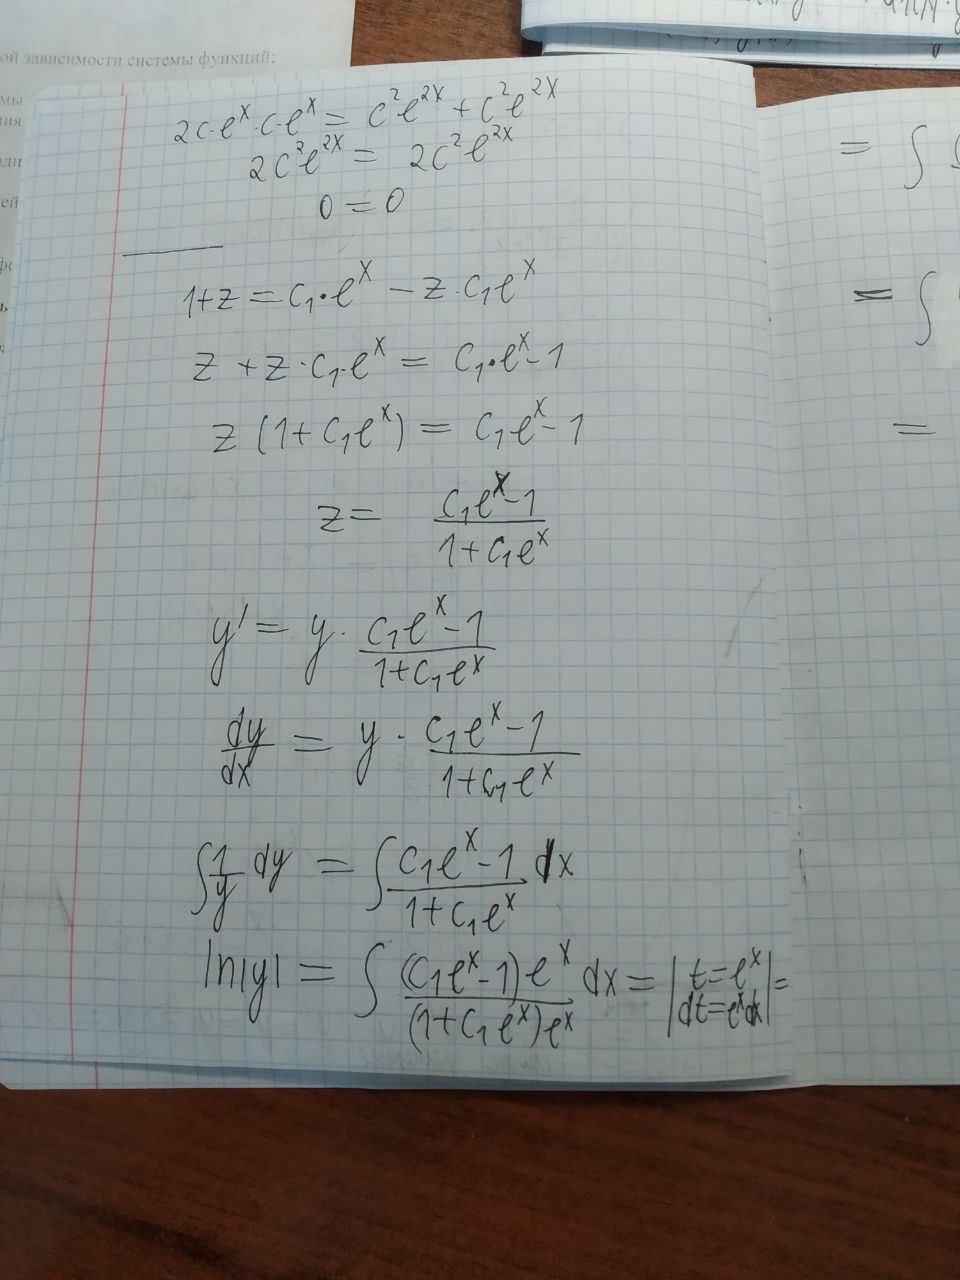 ой зависимости системы функций;
мы
ния
оди
ей
2c·e^x·c·e^x = c²e^{2x} + c²e^{2x}
2c²e^{2x} = 2c²e^{2x}
0 = 0
1+z = c₁·e^x − z·c₁e^x
z + z·c₁·e^x = c₁·e^x − 1
z (1 + c₁e^x) = c₁e^x − 1
z = \frac{c₁e^x − 1}{1 + c₁e^x}
y' = y · \frac{c₁e^x − 1}{1 + c₁e^x}
\frac{dy}{dx} = y · \frac{c₁e^x − 1}{1 + c₁e^x}
∫ \frac{1}{y} dy = ∫ \frac{c₁e^x − 1}{1 + c₁e^x} dx
ln|y| = ∫ \frac{(c₁e^x − 1)e^x}{(1 + c₁e^x)e^x} dx = | t = e^x | =
| dt = e^x dx |
= ∫
= ∫
=